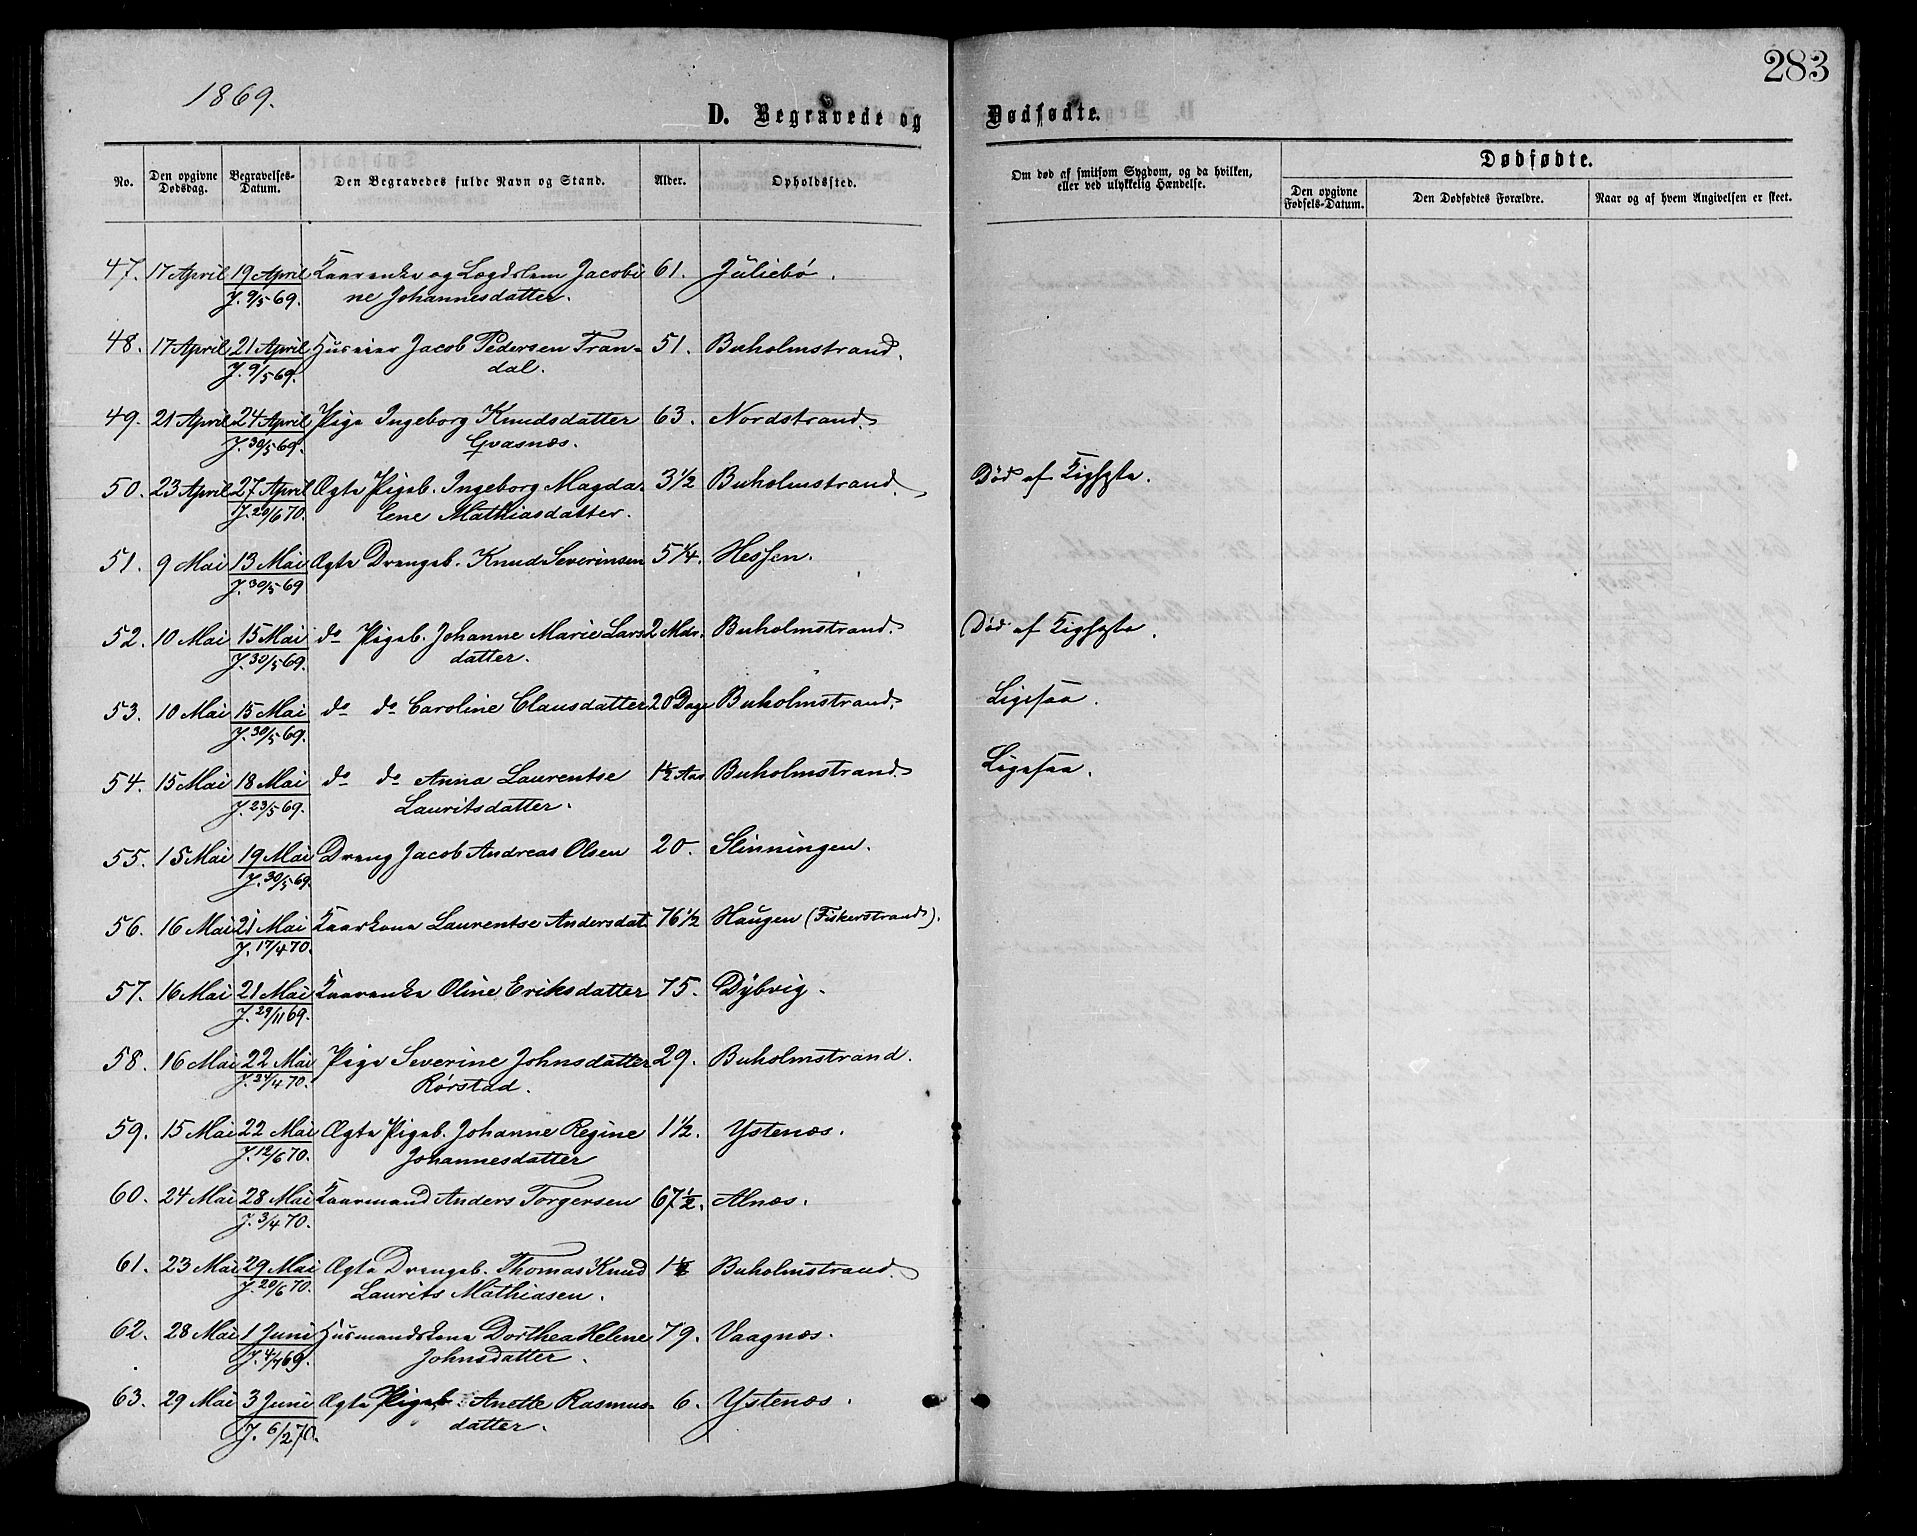 283
1869.
D. Begravede og Dødfødte.
No. Den opgivne Dødsdag. Begravelses-Datum. Den Begravedes fulde Navn og Stand. Alder. Opholdssted. Om død af smitsom Sygdom, og da hvilken, eller ved ulykkelig Hændelse. Dødfødte.
Den opgivne Fødsels-Datum. Den Dødfødtes Forældre. Naar og af hvem Angivelsen er skeet.
47. 17 April 19 April Kaarenke og Lægdslem Jacobi 61. Juliebø.
J. 9/5 69. ne Johannesdatter.
48. 17 April 21 April Huseier Jacob Pedersen Tran- 51. Buholmstrand.
J. 9/5 69. dal.
49. 21 April 24 April Pige Ingeborg Knudsdatter 63. Nordstrand.
J. 30/5 69. Gvasnæs.
50. 23 April 27 April Ægte Pigeb. Ingeborg Magda- 3 1/2 Buholmstrand. Død af Kighoste.
J. 20/6 70. lene Mathiasdatter.
51. 9 Mai 13 Mai Ægte Drengeb. Knud Severinsen 5 1/4. Hessen.
J. 30/5 69
52. 10 Mai 15 Mai do Pigeb. Johanne Marie Lars 2 Mdr. Buholmstrand. Død af Kighoste.
J. 30/5 69. datter.
53. 10 Mai 15 Mai do do Caroline Clausdatter 20 Dage Buholmstrand. Ligesaa.
J. 30/5 69.
54. 15 Mai 18 Mai do do Anna Laurentse 1 1/2 Aar Buholmstrand. Ligesaa.
J. 23/5 69. Lauritsdatter.
55. 15 Mai 19 Mai Dreng Jacob Andreas Olsen 20. Slinningen.
J. 30/5 69.
56. 16 Mai 21 Mai Kaarkone Laurentse Andersdat 76 1/2 Haugen (Fiskerstrand).
J. 17/4 70.
57. 16 Mai 21 Mai Kaarenke Oline Eriksdatter 75. Dybvig.
J. 29/11 69.
58. 16 Mai 22 Mai Pige Severine Johnsdatter 29. Buholmstrand.
J. 24/4 70. Rørstad.
59. 15 Mai 22 Mai Ægte Pigeb. Johanne Regine 1 1/2. Ystenæs.
J. 12/6 70. Johannesdatter
60. 24 Mai 28 Mai Kaarmand Anders Torgersen 67 1/2. Alnæs.
J. 3/4 70.
61. 23 Mai 29 Mai Ægte Drengeb. Thomas Knud Buholmstrand.
J. 20/6 70. Laurits Mathiasen.
62. 28 Mai 1 Juni Husmandskone Dorthea Helene 79. Vaagnæs.
J. 4/7 69. Johnsdatter.
63. 29 Mai 3 Juni Ægte Pigeb. Anette Rasmus- 6. Ystenæs.
J. 6/2 70. datter.